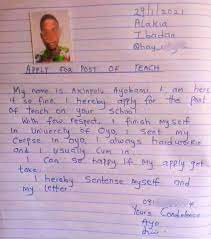 29/1/2021
Alakia
Ibadan
APPLY FOR POST OF TEACH
My name is Axinpolu Ayobami. I am here
4 so fine. I hereby apply for the post
of Teach on your school.
With few respect, I finish myself
in University of Oyo, I sent my
Corpse in Oyo, I always hardworkie
and I usually Cum in.
I can so happy if my apply get
take.
I hereby Sentense Myself and
my letter.
Yours Condofence
Ayo